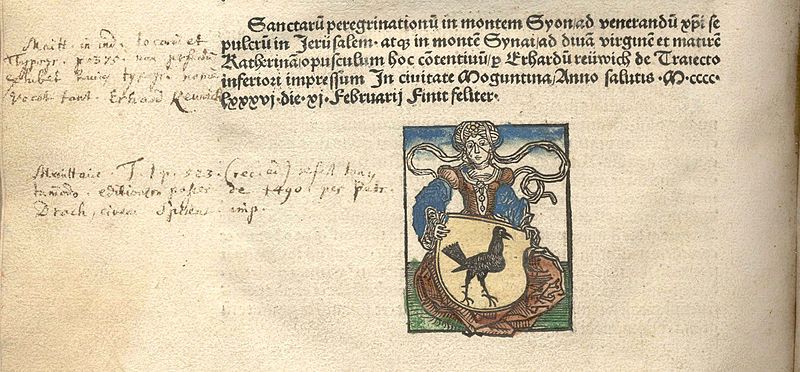 Sanctarū peregrinationū in montem Syon ad venerandū xp̄i se
pulcrū in Jerusalem. atqꝫ in montē Synai ad diuā virginē et matirē
Katherinā opusculum hoc cōtentiuū ꝑ Erhardū reüwich de Traiecto
inferiori impressum In ciuitate Moguntina Anno salutis ·M·cccc·
lxxxvj·die·xj·Februarij Finit feliter·
Maitt. in ind. et
Typogr. p. 375.
tant. Erhard Reuwich
Maittaire. T. I p. 523.
editionem de 1490 per Petr.
Drach, civem imp.